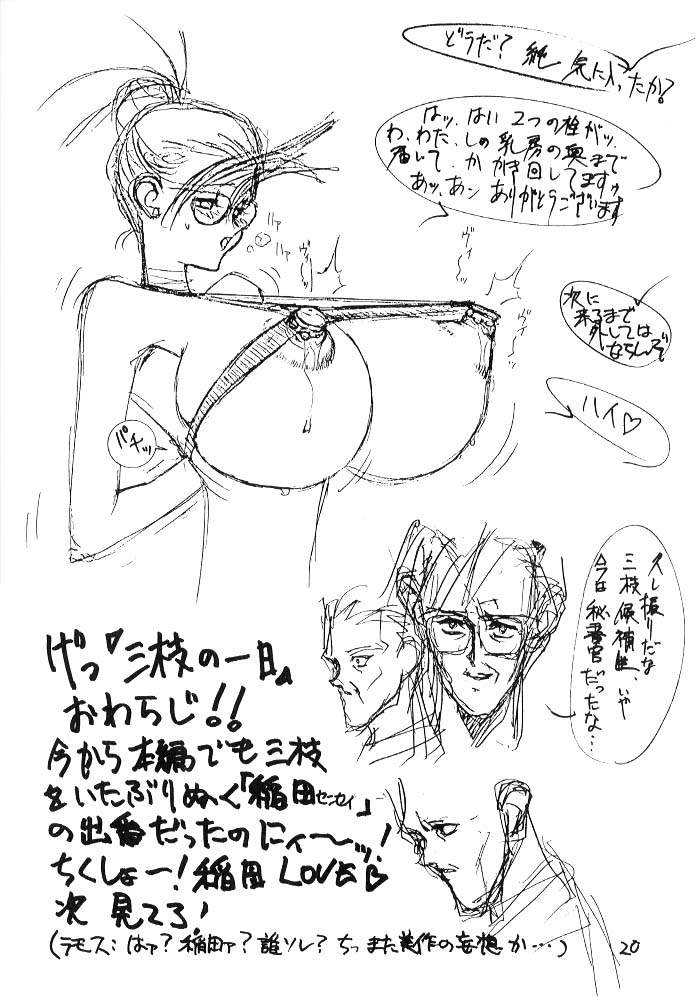 どうだ？純 気に入ったか？
はッ、はい 2つの栓がッ、
わ、わた、しの乳房の奥まで
届いて、か かき回してますゥ
あッ、あン ありがとうございます
ハァ
ハァ
ヴィ〜
ヴィ〜
次に
来るまで
外しては
ならんぞ
ハイ♡
パチッ
久し振りだな
三枝候補生、いや
今は秘書官だったな…
げっ『三枝の一日』
おわらじ!!
今から本編でも三枝
をいたぶりぬく「稲田センセイ」
の出番だったのにィ〜ッ!
ちくしょー!稲田 LOVE♡
次 見てろ!
(テモス:はァ?稲田ァ?誰ソレ?ちっ また美作の妄想か…)
20